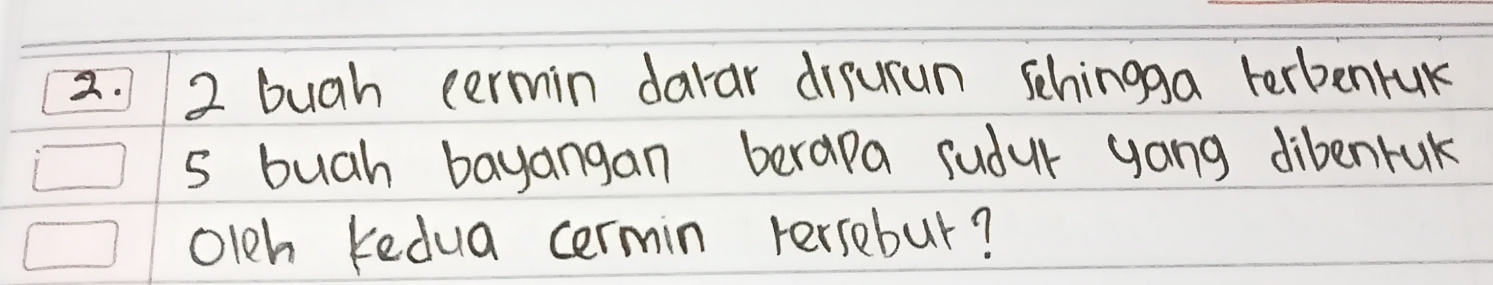 2. 2 buah cermin datar disusun sehingga terbentuk
5 buah bayangan berapa sudut yang dibentuk
oleh kedua cermin tersebut?